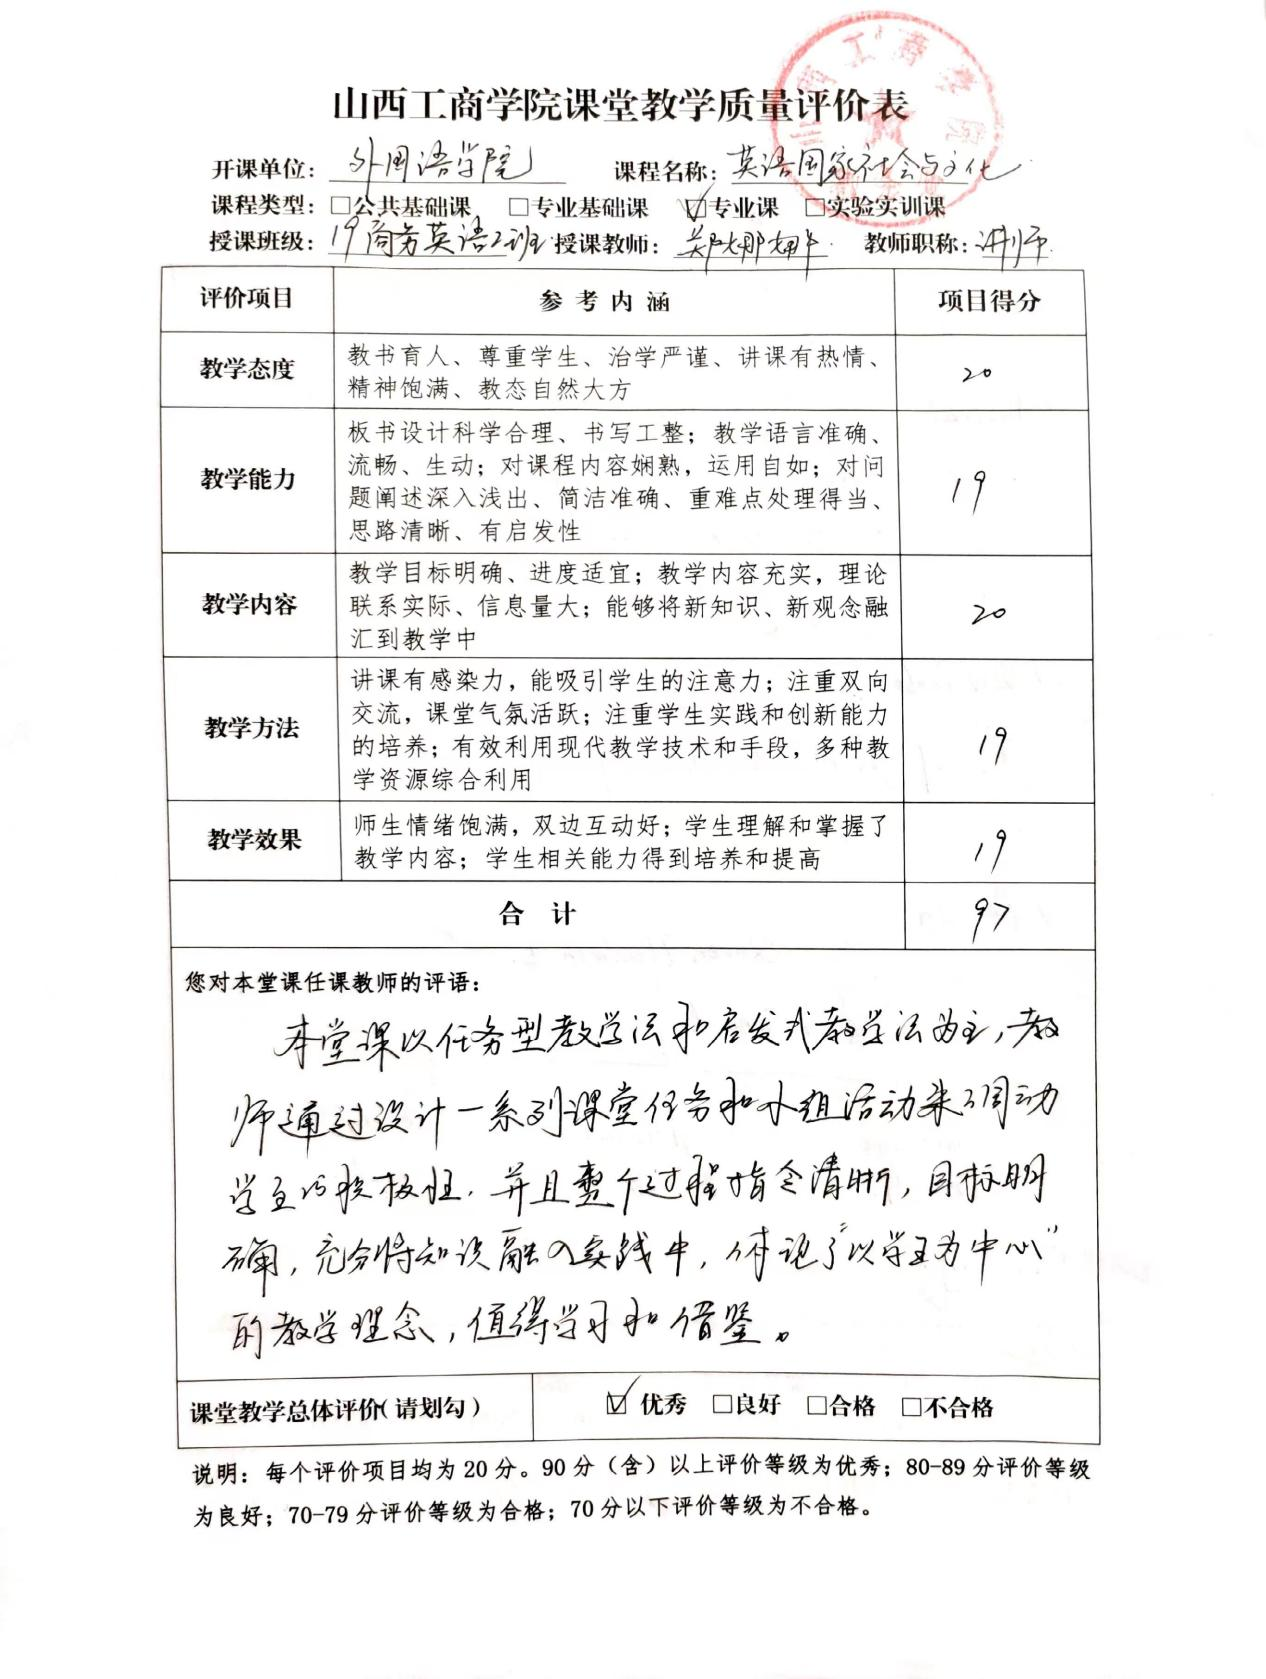 山西工商学院课堂教学质量评价表
开课单位：外国语学院 课程名称：英语国家社会与文化
课程类型：□公共基础课 □专业基础课 ☑专业课 □实验实训课
授课班级：19商务英语2班 授课教师：郑娜娜 教师职称：讲师
评价项目 参考内涵 项目得分
教书育人、尊重学生、治学严谨、讲课有热情、
教学态度 20
精神饱满、教态自然大方
板书设计科学合理、书写工整；教学语言准确、
流畅、生动；对课程内容娴熟，运用自如；对问
教学能力 19
题阐述深入浅出、简洁准确、重难点处理得当、
思路清晰、有启发性
教学目标明确、进度适宜；教学内容充实，理论
教学内容 联系实际、信息量大；能够将新知识、新观念融 20
汇到教学中
讲课有感染力，能吸引学生的注意力；注重双向
交流，课堂气氛活跃；注重学生实践和创新能力
教学方法 19
的培养；有效利用现代教学技术和手段，多种教
学资源综合利用
师生情绪饱满，双边互动好；学生理解和掌握了
教学效果 19
教学内容；学生相关能力得到培养和提高
合 计 97
您对本堂课任课教师的评语：
本堂课以任务型教学法和启发式教学法为主，教
师通过设计一系列课堂任务和小组活动来调动
学生的积极性，并且整个过程指令清晰，目标明
确，充分将知识融入实践中，体现了“以学生为中心”
的教学理念，值得学习和借鉴。
课堂教学总体评价（请划勾） ☑优秀 □良好 □合格 □不合格
说明：每个评价项目均为20分。90分（含）以上评价等级为优秀；80-89分评价等级
为良好；70-79分评价等级为合格；70分以下评价等级为不合格。
山西工商学院